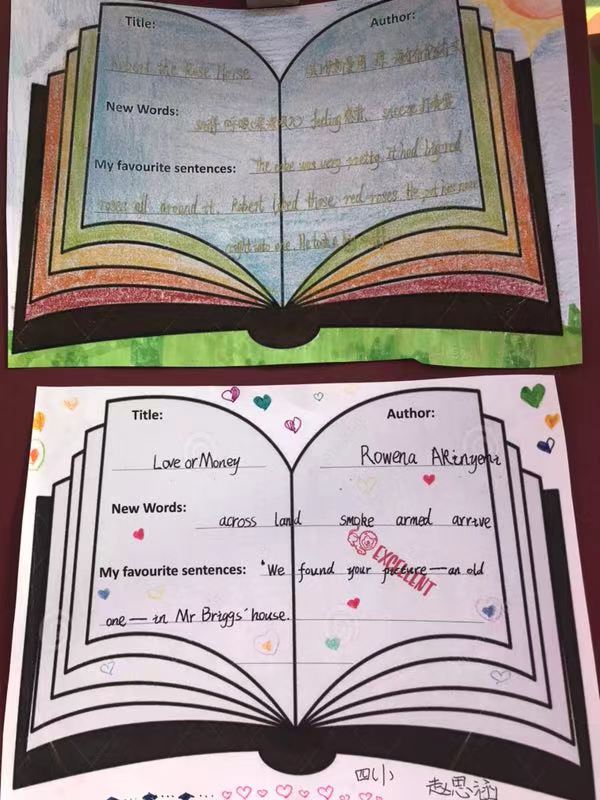 Title:
Author:
Robert the Rose Horse
New Words:
sniff
feeling
sneeze 打喷嚏
My favourite sentences: The cake was very pretty. It had big red
roses all around it. Robert liked those red roses. He put his nose
right into one. He took a big sniff
Title:
Author:
Love or Money
Rowena Akinyemi
New Words:
across land smoke armed arrive
EXCELLENT
My favourite sentences: 'We found your picture — an old
one — in Mr Briggs' house.
四(1)
赵思涵